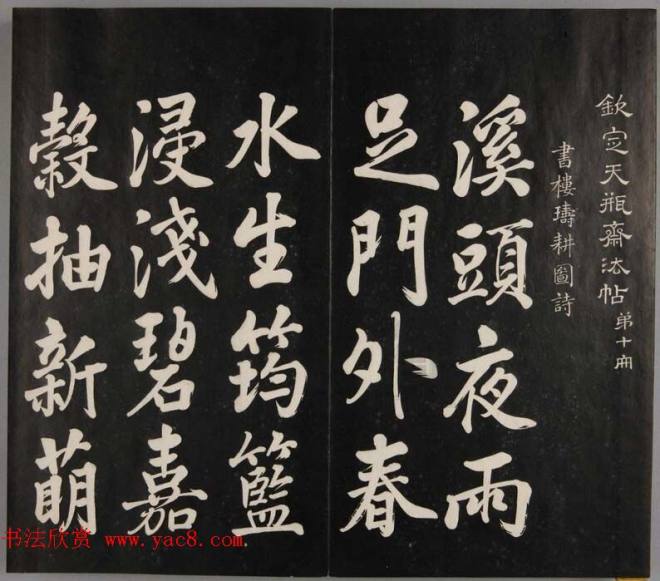 欽定天瓶齋法帖第十冊
書樓璹耕圖詩
溪頭夜雨
足門外春
水生筠籃
浸淺碧嘉
穀抽新萌
书法欣赏 www.yac8.com